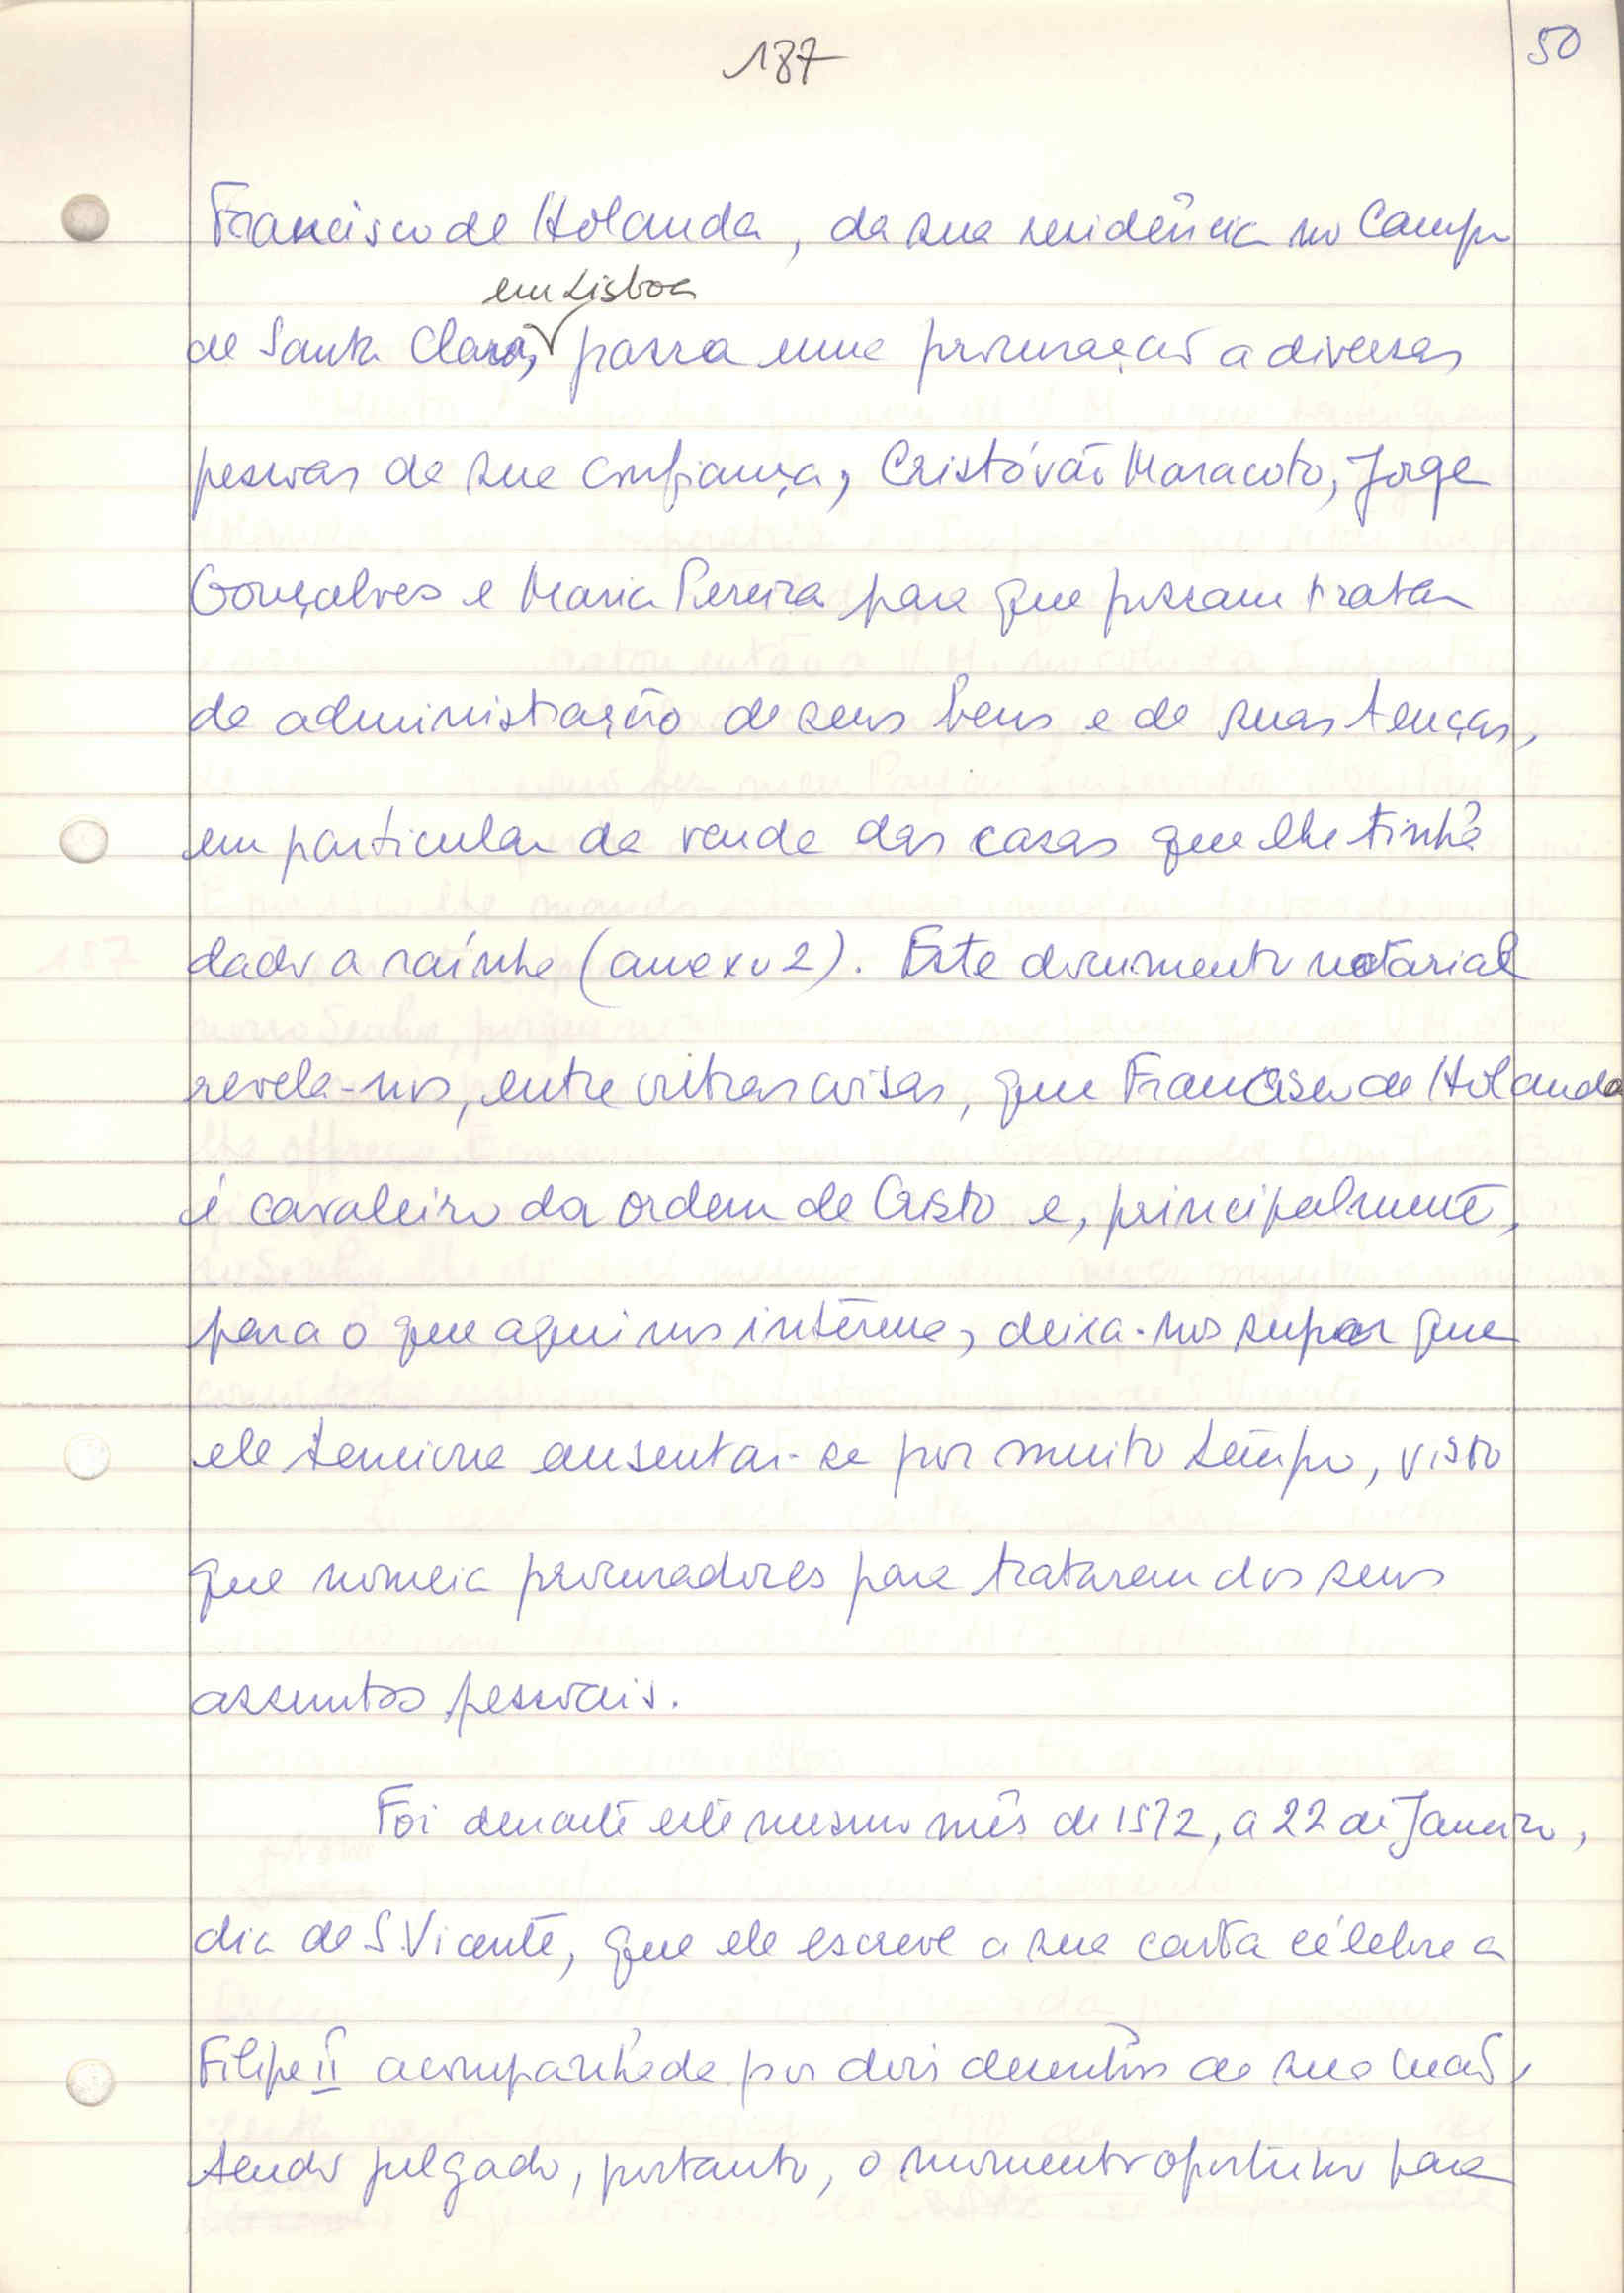 187
50
Francisco de Holanda, da sua residência no Campo
em Lisboa
de Santa Clara, passa uma procuração a diversas
pessoas de sua confiança, Cristóvão Maracoto, Jorge
Gonçalves e Maria Pereira para que possam tratar
de administração de seus bens e de suas tenças,
em particular da venda das casas que lhe tinha
dado a raínha (anexo 2). Este documento notarial
revela-nos, entre outras coisas, que Francisco de Holanda
é cavaleiro da ordem de Cristo e, principalmente,
para o que aqui nos interessa, deixa-nos supor que
ele tenciona ausentar-se por muito tempo, visto
que nomeia procuradores para tratarem dos seus
assuntos pessoais.
Foi durante este mesmo mês de 1572, a 22 de Janeiro,
dia de S. Vicente, que ele escreve a sua carta célebre a
Filipe II acompanhada por dois desenhos de sua mão,
tendo julgado, portanto, o momento oportuno para